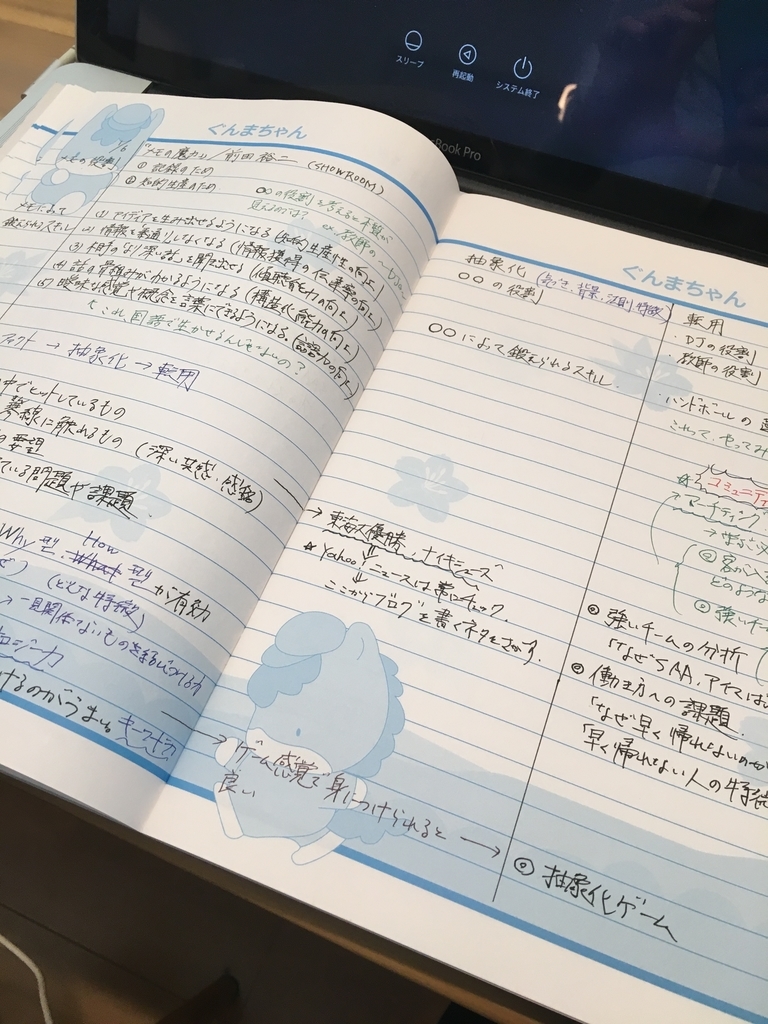 スリープ
再起動
システム終了
Book Pro
ぐんまちゃん
1/6
メモの役割
『メモの魔力』/前田裕二 (SHOWROOM)
① 記録のため
② 知的生産のため
〇〇の役割を考えると本質が
見えるのでは?
ex. 教師の~ DJの~
メモによって
鍛えられるスキル
(1) アイディアを生み出せるようになる (知的生産性の向上)
(2) 情報を素通りしなくなる (情報獲得の伝導率の向上)
(3) 相手の「より深い話」を聞き出せる (傾聴能力の向上)
(4) 話の骨組みがわかるようになる (構造化能力の向上)
(5) 曖昧な感覚や概念を言葉にできるようになる。(言語化力の向上)
これ国語で生かせるんじゃないの?
ファクト → 抽象化 → 転用
中でヒットしているもの
琴線に触れるもの (深い共感・感銘)
の要望
ている問題や課題
Why型、How型が有効
(どんな特徴)
→ 一見関係ないものを結びつける力
ロジー力
けるのがうまい。キーワード力
ぐんまちゃん
抽象化 (気づき、背景、法則、特徴)
〇〇の役割
〇〇によって鍛えられるスキル
→ 東海大優勝、ナイキシューズ
# Yahoo!ニュースは常にチェック。
↓
ここからブログを書くネタをさがす。
→ ゲーム感覚で身につけられると →
良い
転用
・DJの役割
・教師の役割
・ハンドボールの
これって、やってみ
コミュニティ
マーケティング
どのような
◎ 強いチー
◎ 強いチームの分析
「なぜSAA、アイスは
◎ 働き方への課題
「なぜ早く帰れないのか
「早く帰れない人の特徴
◎ 抽象化ゲーム